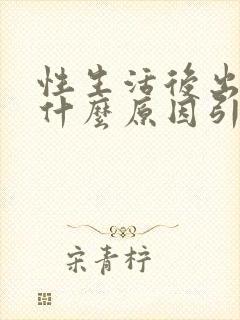 性生活後出
什麼原因引
宋青柠